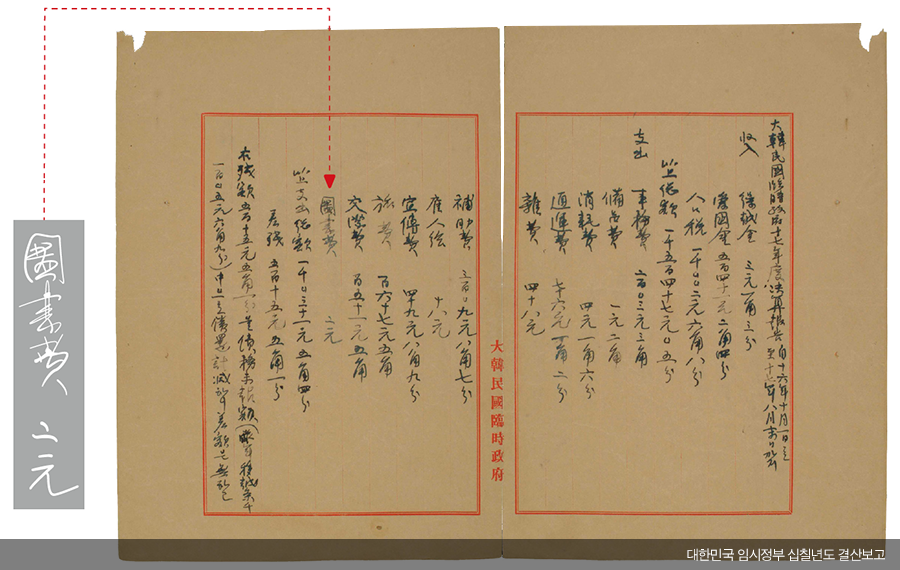 大韓民國臨時政府十七年度決算報告 自十六年十月一日至十七年八月末日
收入
人口稅 一千〇〇二元六角八分
愛國金 五百四十一元二角四分
以上 總額 一千五百四十七元〇五分
支出
事務費 二百〇三元三角
備品費 一元二角
消耗費 四元一角六分
通運費
雜費 四十八元
大韓民國臨時政府
補助費 三百〇九元八角七分
雇人給 十八元
宣傳費 四十九元八角九分
旅費 一百六十七元五角
交際費 一百五十一元五角
圖書費 二元
以上 支出總額 一千〇三十一元五角四分
差殘 五百十五元五角一分
右殘額 五百十五元五角一分
一百〇五元六角九分
圖書費 二元
대한민국 임시정부 십칠년도 결산보고